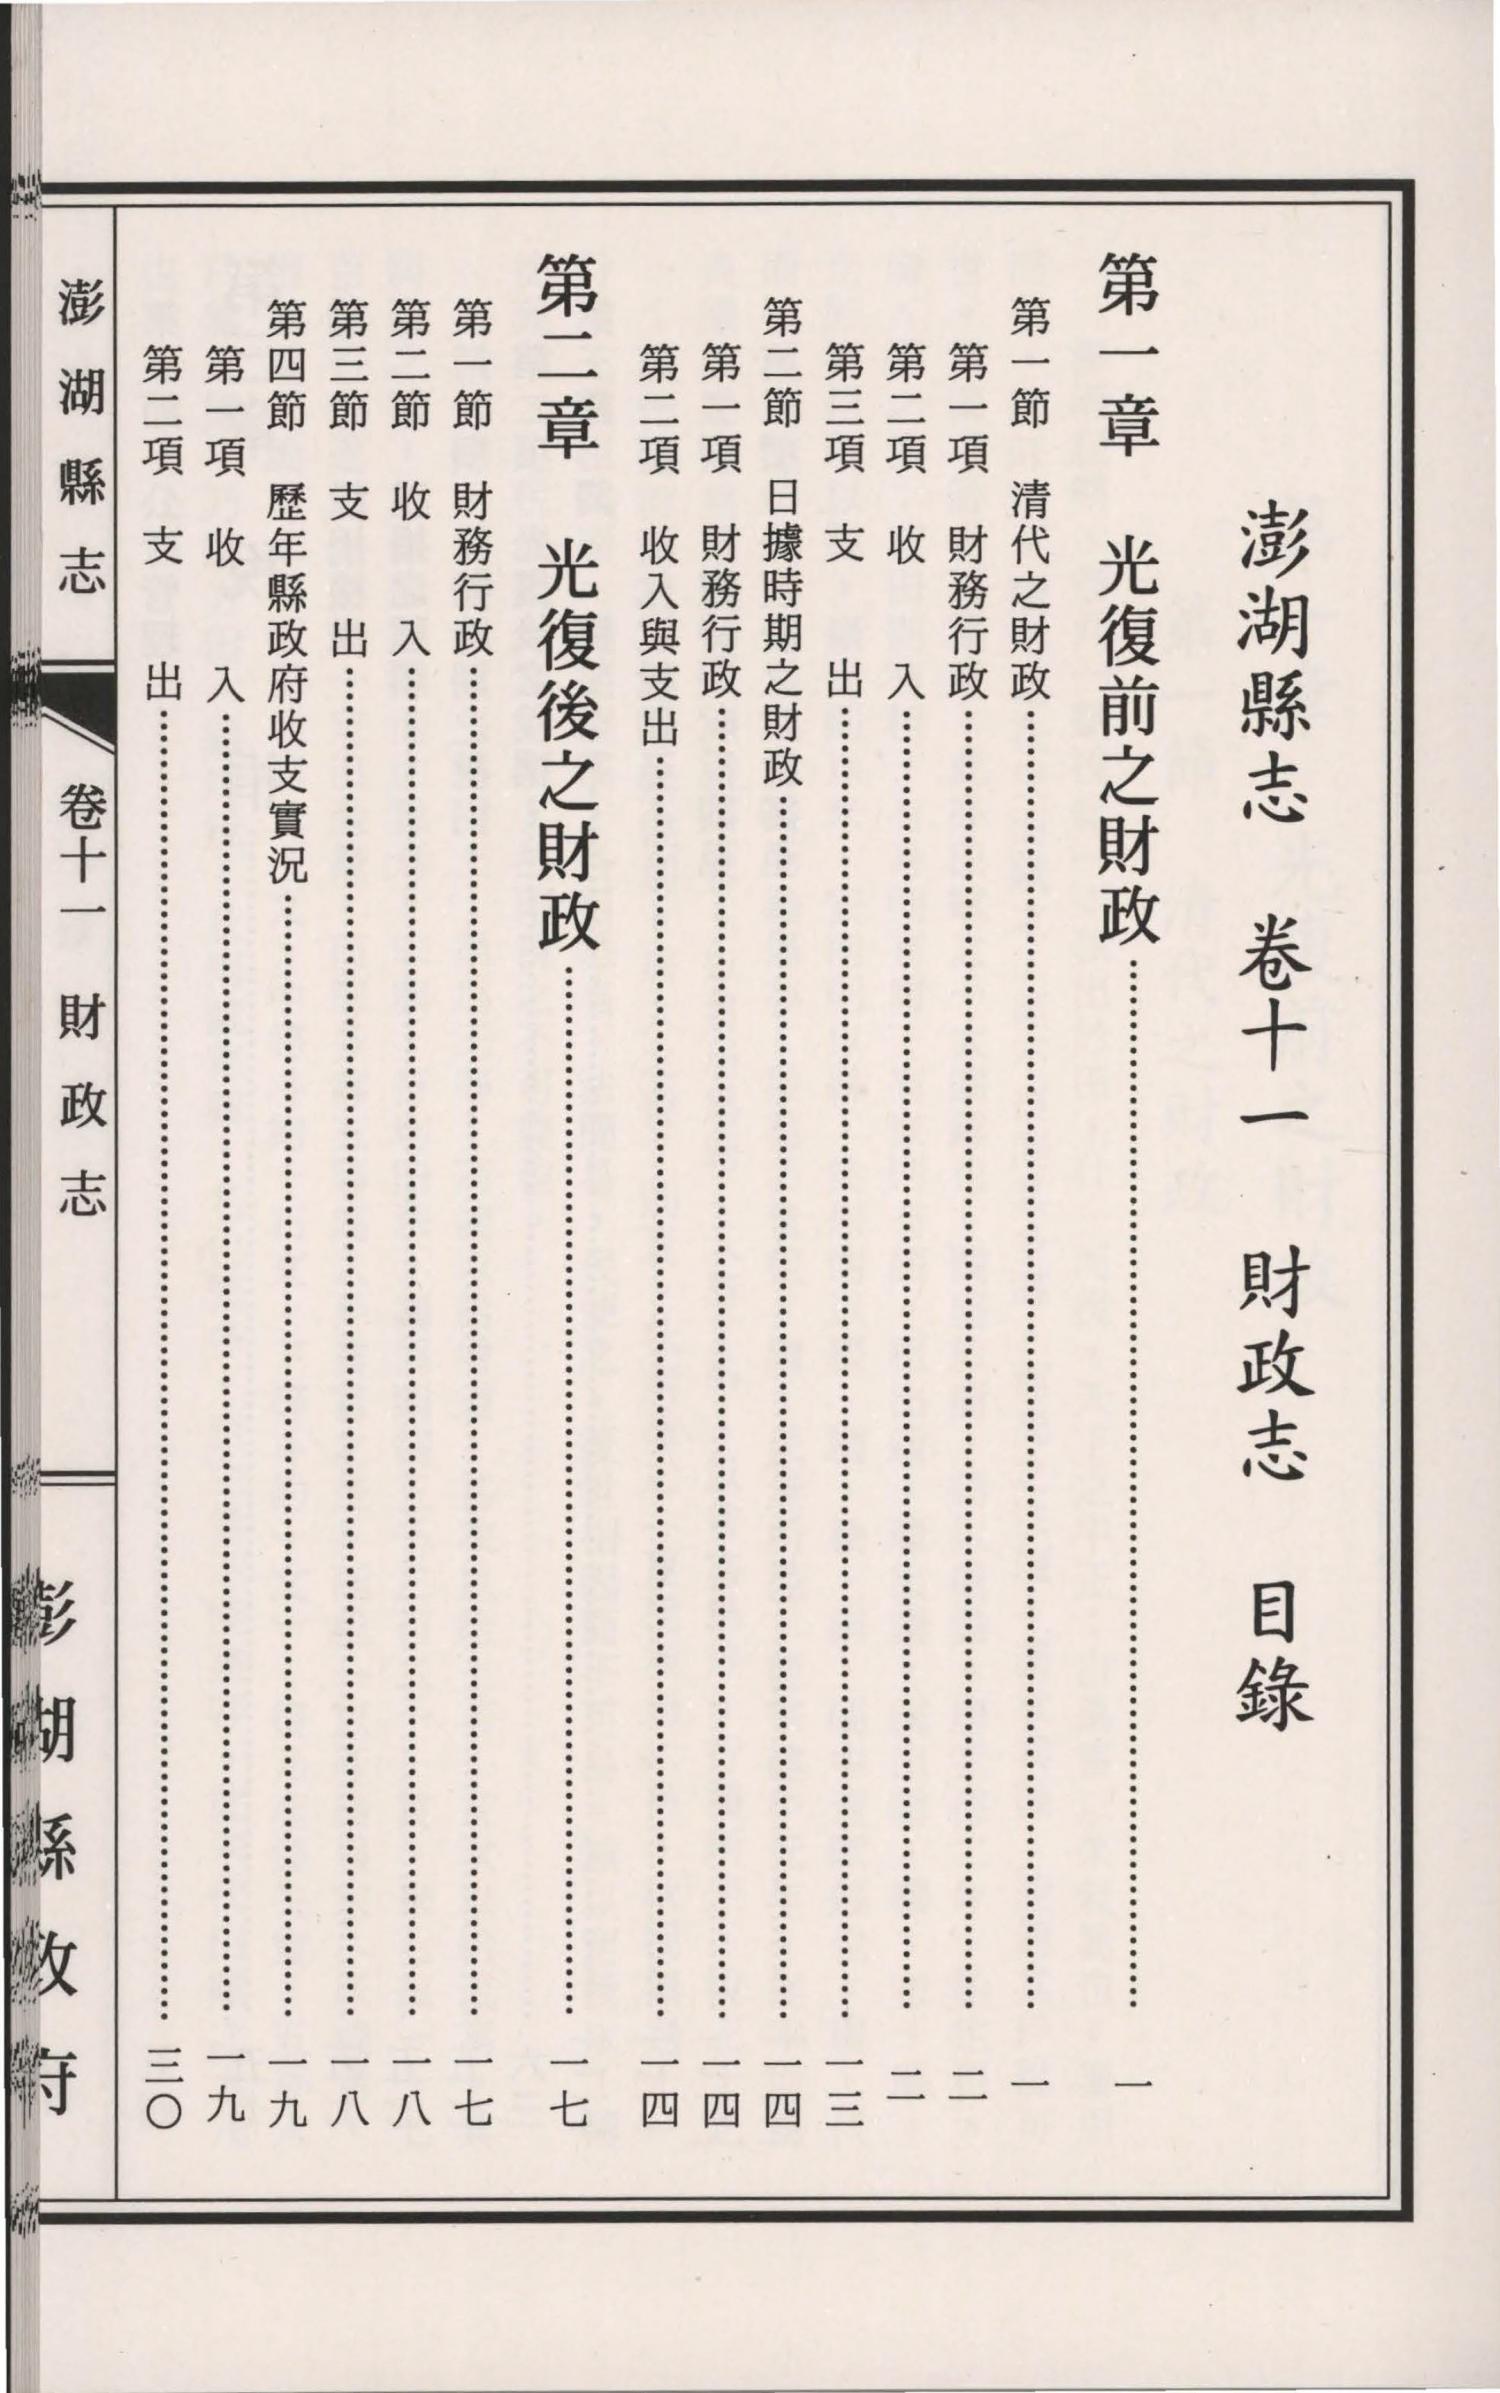 澎湖縣志　卷十一　財政志　目錄
第一章　光復前之財政…………一
第一節　清代之財政…………一
第一項　財務行政…………二
第二項　收　入…………二
第三項　支　出…………一三
第二節　日據時期之財政…………一四
第一項　財務行政…………一四
第二項　收入與支出…………一四
第二章　光復後之財政…………一七
第一節　財務行政…………一七
第二節　收　入…………一八
第三節　支　出…………一八
第四節　歷年縣政府收支實況…………一九
第一項　收　入…………一九
第二項　支　出…………三〇
澎湖縣志　卷十一　財政志
澎湖縣政府